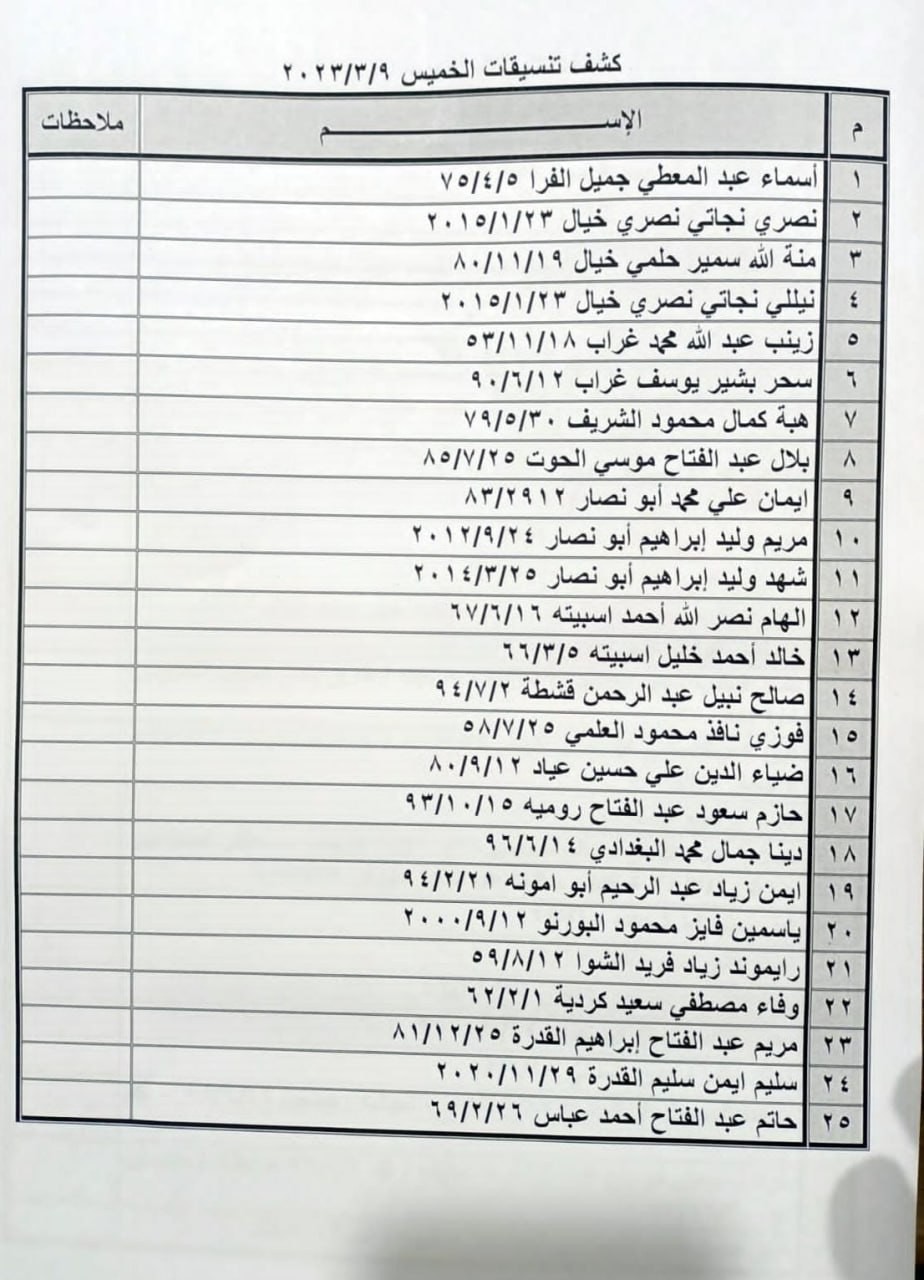 كشف تنسيقات الخميس ٢٠٢٣/٣/٩
م الإســـــــم ملاحظات
١ أسماء عبد المعطي جميل الفرا ٧٥/٤/٥
٢ نصري نجاتي نصري خيال ٢٠١٥/١/٢٣
٣ منة الله سمير حلمي خيال ٨٠/١١/١٩
٤ نيللي نجاتي نصري خيال ٢٠١٥/١/٢٣
٥ زينب عبد الله محمد غراب ٥٣/١١/١٨
٦ سحر بشير يوسف غراب ٩٠/٦/١٢
٧ هبة كمال محمود الشريف ٧٩/٥/٣٠
٨ بلال عبد الفتاح موسي الحوت ٨٥/٧/٢٥
٩ ايمان علي محمد أبو نصار ٨٣/٢٩١٢
١٠ مريم وليد إبراهيم أبو نصار ٢٠١٢/٩/٢٤
١١ شهد وليد إبراهيم أبو نصار ٢٠١٤/٣/٢٥
١٢ الهام نصر الله أحمد اسبيته ٦٧/٦/١٦
١٣ خالد أحمد خليل اسبيته ٦٦/٣/٥
١٤ صالح نبيل عبد الرحمن قشطة ٩٤/٧/٢
١٥ فوزي نافذ محمود العلمي ٥٨/٧/٢٥
١٦ ضياء الدين علي حسين عياد ٨٠/٩/١٢
١٧ حازم سعود عبد الفتاح روميه ٩٣/١٠/١٥
١٨ دينا جمال محمد البغدادي ٩٦/٦/١٤
١٩ ايمن زياد عبد الرحيم أبو امونه ٩٤/٢/٢١
٢٠ ياسمين فايز محمود البورنو ٢٠٠٠/٩/١٢
٢١ رايموند زياد فريد الشوا ٥٩/٨/١٢
٢٢ وفاء مصطفي سعيد كردية ٦٢/٢/١
٢٣ مريم عبد الفتاح إبراهيم القدرة ٨١/١٢/٢٥
٢٤ سليم ايمن سليم القدرة ٢٠٢٠/١١/٢٩
٢٥ حاتم عبد الفتاح أحمد عباس ٦٩/٢/٢٦